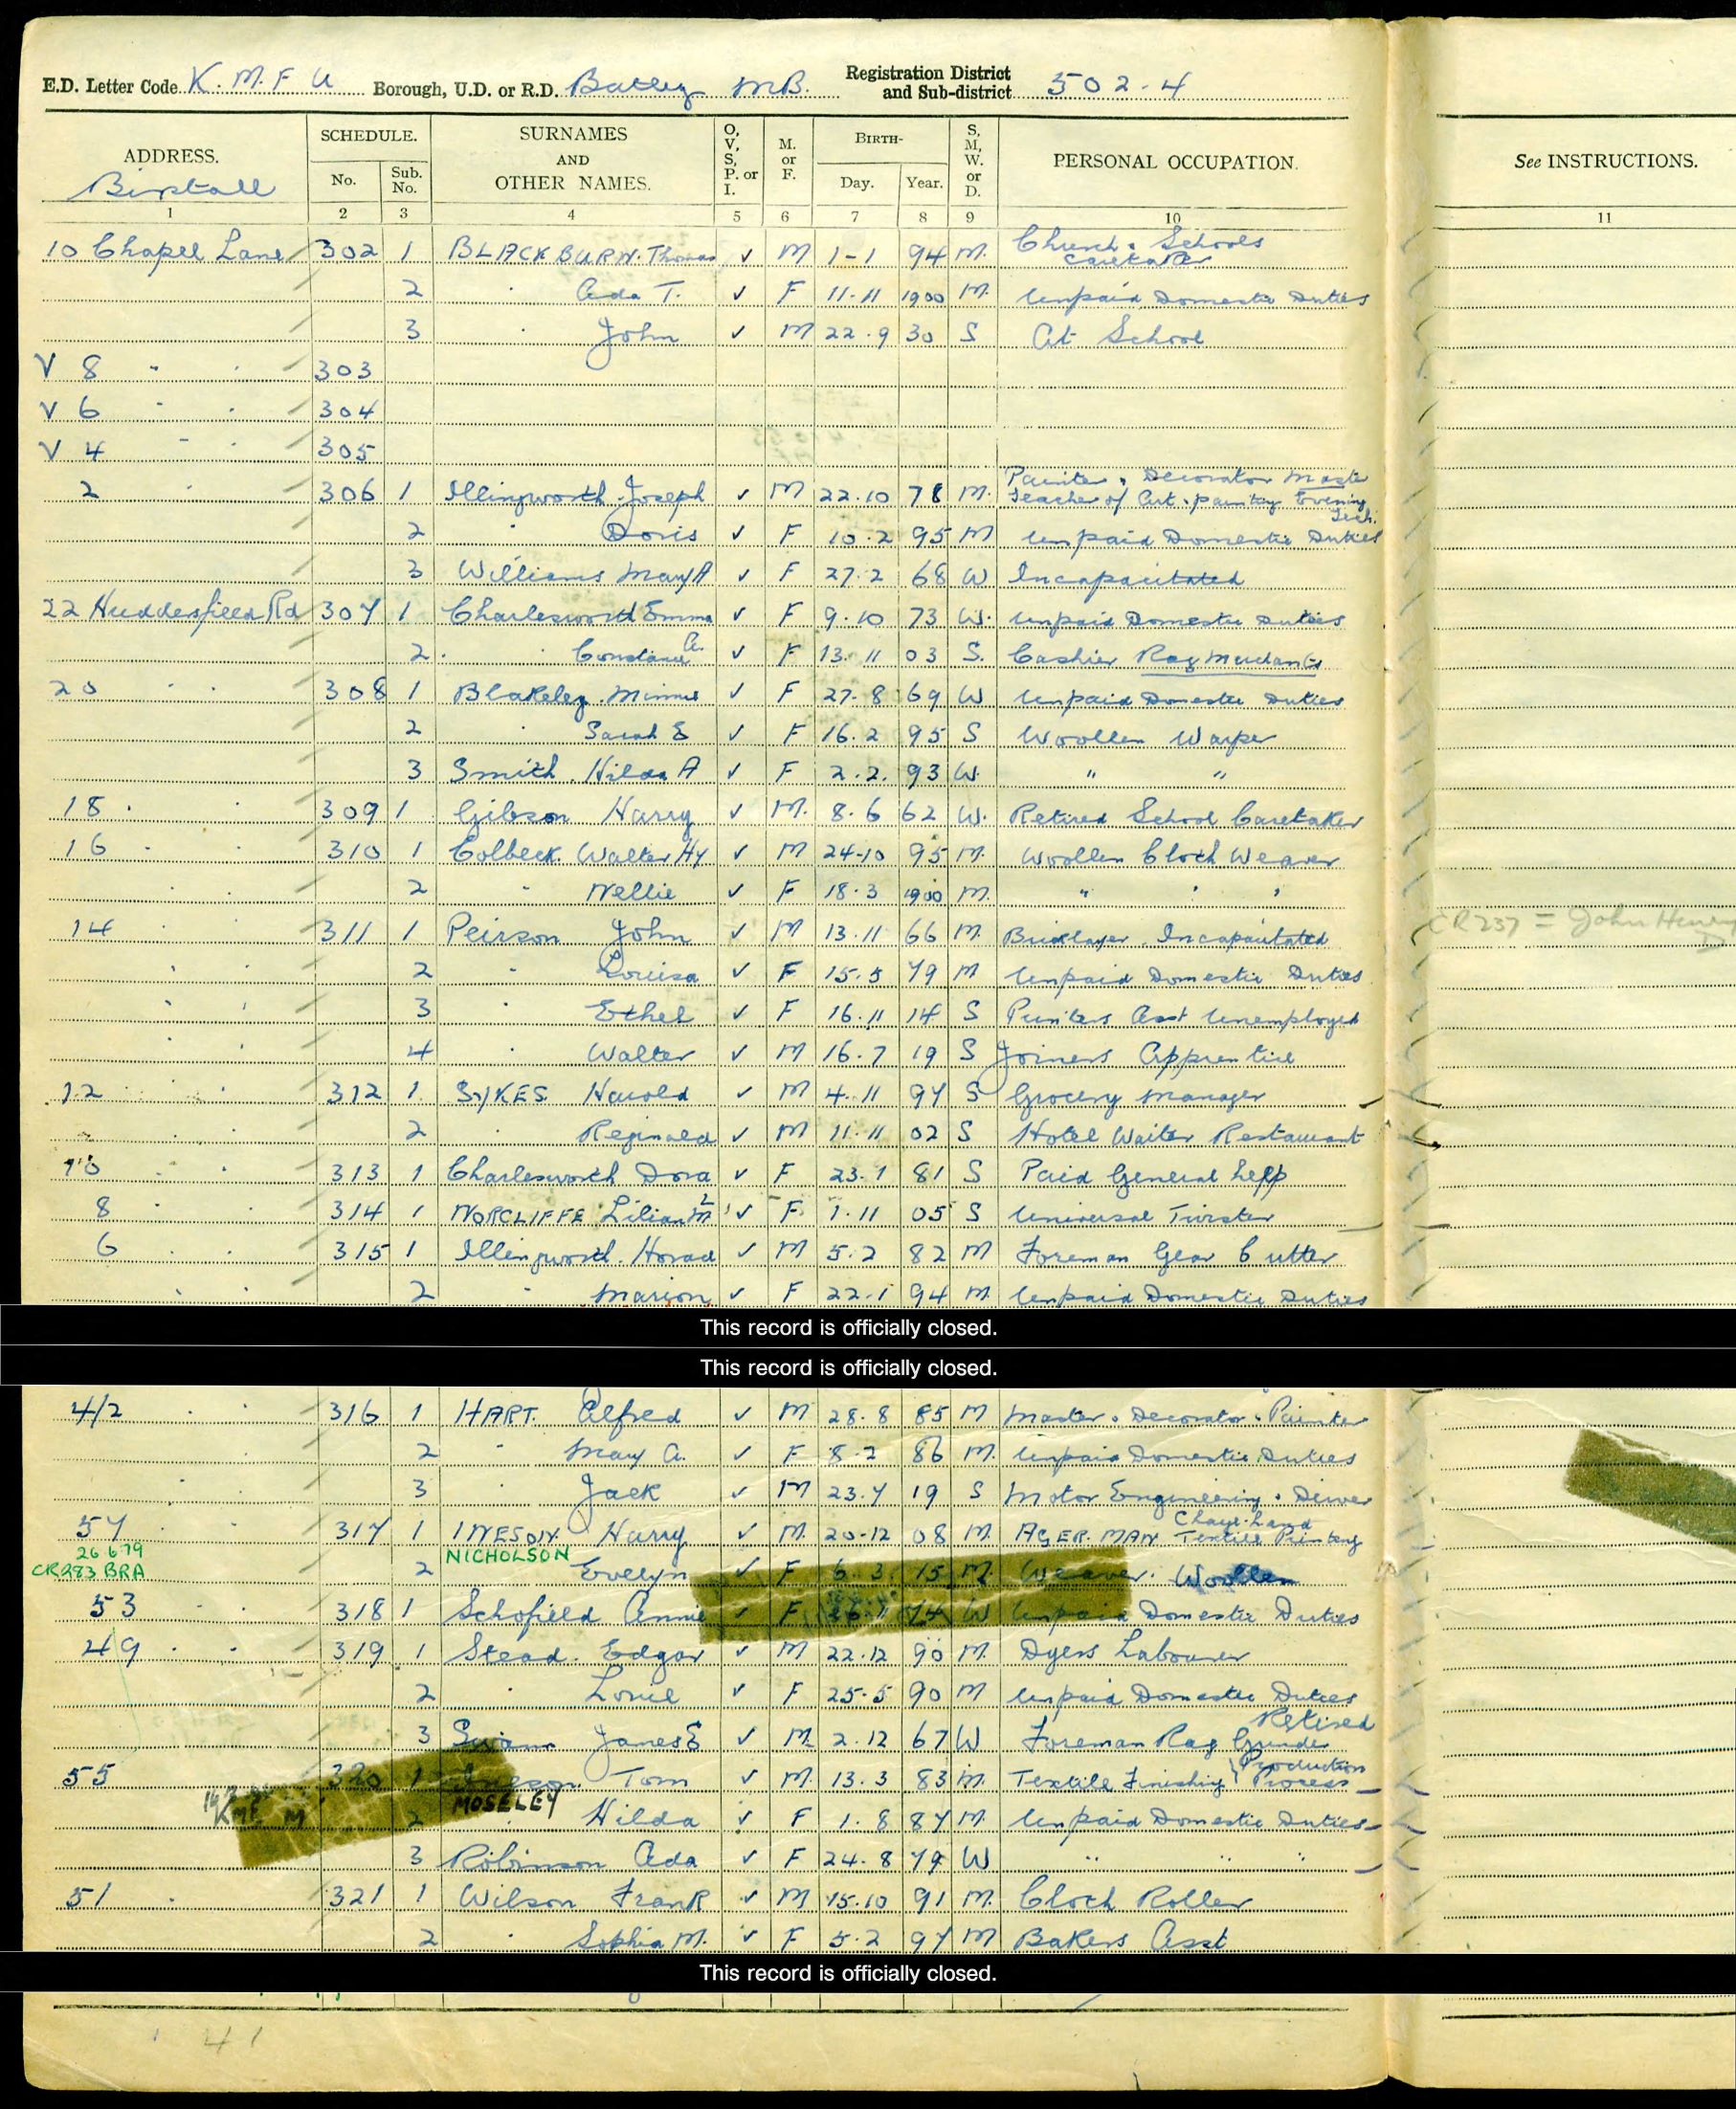 E.D. Letter Code K.M.F U Borough, U.D. or R.D. Batley MB. Registration District and Sub-district 502-4
ADDRESS. SCHEDULE. SURNAMES AND OTHER NAMES. O, V, S, P. or I. M. or F. BIRTH- S, M, W. or D. PERSONAL OCCUPATION. See INSTRUCTIONS.
Birstall No. Sub. No. Day. Year.
1 2 3 4 5 6 7 8 9 10 11
10 Chapel Lane 302 1 BLACKBURN. Thomas ✓ M 1-1 94 M. Church & Schools Caretaker
2 " Ada T. ✓ F 11.11 1900 M. Unpaid Domestic Duties
3 " John ✓ M 22.9 30 S At School
V 8 " " 303
V 6 " " 304
V 4 " " 305
2 " 306 1 Illingworth Joseph ✓ M 22.10 78 M. Painter & Decorator Master Teacher of Art & painting Evening Tech.
2 " Doris ✓ F 10.2 95 M Unpaid Domestic Duties
3 Williams Mary A ✓ F 27.2 68 W Incapacitated
22 Huddersfield Rd 307 1 Charlesworth Emma ✓ F 9.10 73 W. Unpaid Domestic Duties
2 " Constance A. ✓ F 13.11 03 S. Cashier Rag Merchants
20 " " 308 1 Blakeley. Minnie ✓ F 27.8 69 W Unpaid Domestic Duties
2 " Sarah E ✓ F 16.2 95 S Woollen Warper
3 Smith. Hilda A ✓ F 2.2. 93 W. " "
18 " " 309 1 Gibson Harry ✓ M. 8.6 62 W. Retired School Caretaker
16 " " 310 1 Colbeck. Walter Hy ✓ M 24-10 95 M. Woollen Cloth Weaver
2 " Nellie ✓ F 18.3 1900 M. " " "
14 " " 311 1 Peirson John ✓ M 13.11 66 M. Bricklayer. Incapacitated CR237 = John Henry
2 " Louisa ✓ F 15.5 79 M Unpaid Domestic Duties
3 " Ethel ✓ F 16.11 14 S Printers Asst Unemployed
4 " Walter ✓ M 16.7 19 S Joiners Apprentice
12 " " 312 1. SYKES Harold ✓ M 4.11 97 S Grocery Manager
2 " Reginald ✓ M 11.11 02 S Hotel Waiter Restaurant
10 " " 313 1 Charlesworth Dora ✓ F 23.1 81 S Paid General help
8 " " 314 1 NORCLIFFE Lilian M L ✓ F 1.11 05 S Universal Twister
6 " " 315 1 Illingworth. Horad ✓ M 5.2 82 M Foreman Gear Cutter
2 " Marion ✓ F 22.1 94 M. Unpaid Domestic Duties
This record is officially closed.
This record is officially closed.
4/2 " " 316 1 HART. Alfred ✓ M 28.8 85 M Master & Decorator & Painter
2 " Mary A. ✓ F 8.2 86 M. Unpaid Domestic Duties
3 " Jack ✓ M 23.7 19 S Motor Engineering & Driver
57 " " 317 1 INESON. Harry ✓ M. 20-12 08 M. AGER. MAN Textile Printing
26 6 79 NICHOLSON
CR283 BRA 2 Evelyn ✓ F 6.3. 15 M. Weaver. Woollen
53 " " 318 1 Schofield Annie ✓ F 74 W Unpaid Domestic Duties
49 " " 319 1 Stead. Edgar ✓ M 22.12 90 M. Dyers Labourer
2 " Louie ✓ F 25.5 90 M Unpaid Domestic Duties
3 Swann James E ✓ M. 2.12 67 W Foreman Rag Grinder Retired
55 320 1 Tom ✓ M. 13.3 83 M. Textile Finishing Production Process
KMF M 2 MOSELEY Hilda ✓ F 1.8 87 M. Unpaid Domestic Duties
3 Robinson Ada ✓ F 24.8 79 W " " "
51 " 321 1 Wilson Frank ✓ M 15.10 91 M. Cloth Roller
2 " Sophia M. ✓ F 5.2 97 M Bakers Asst
This record is officially closed.
41